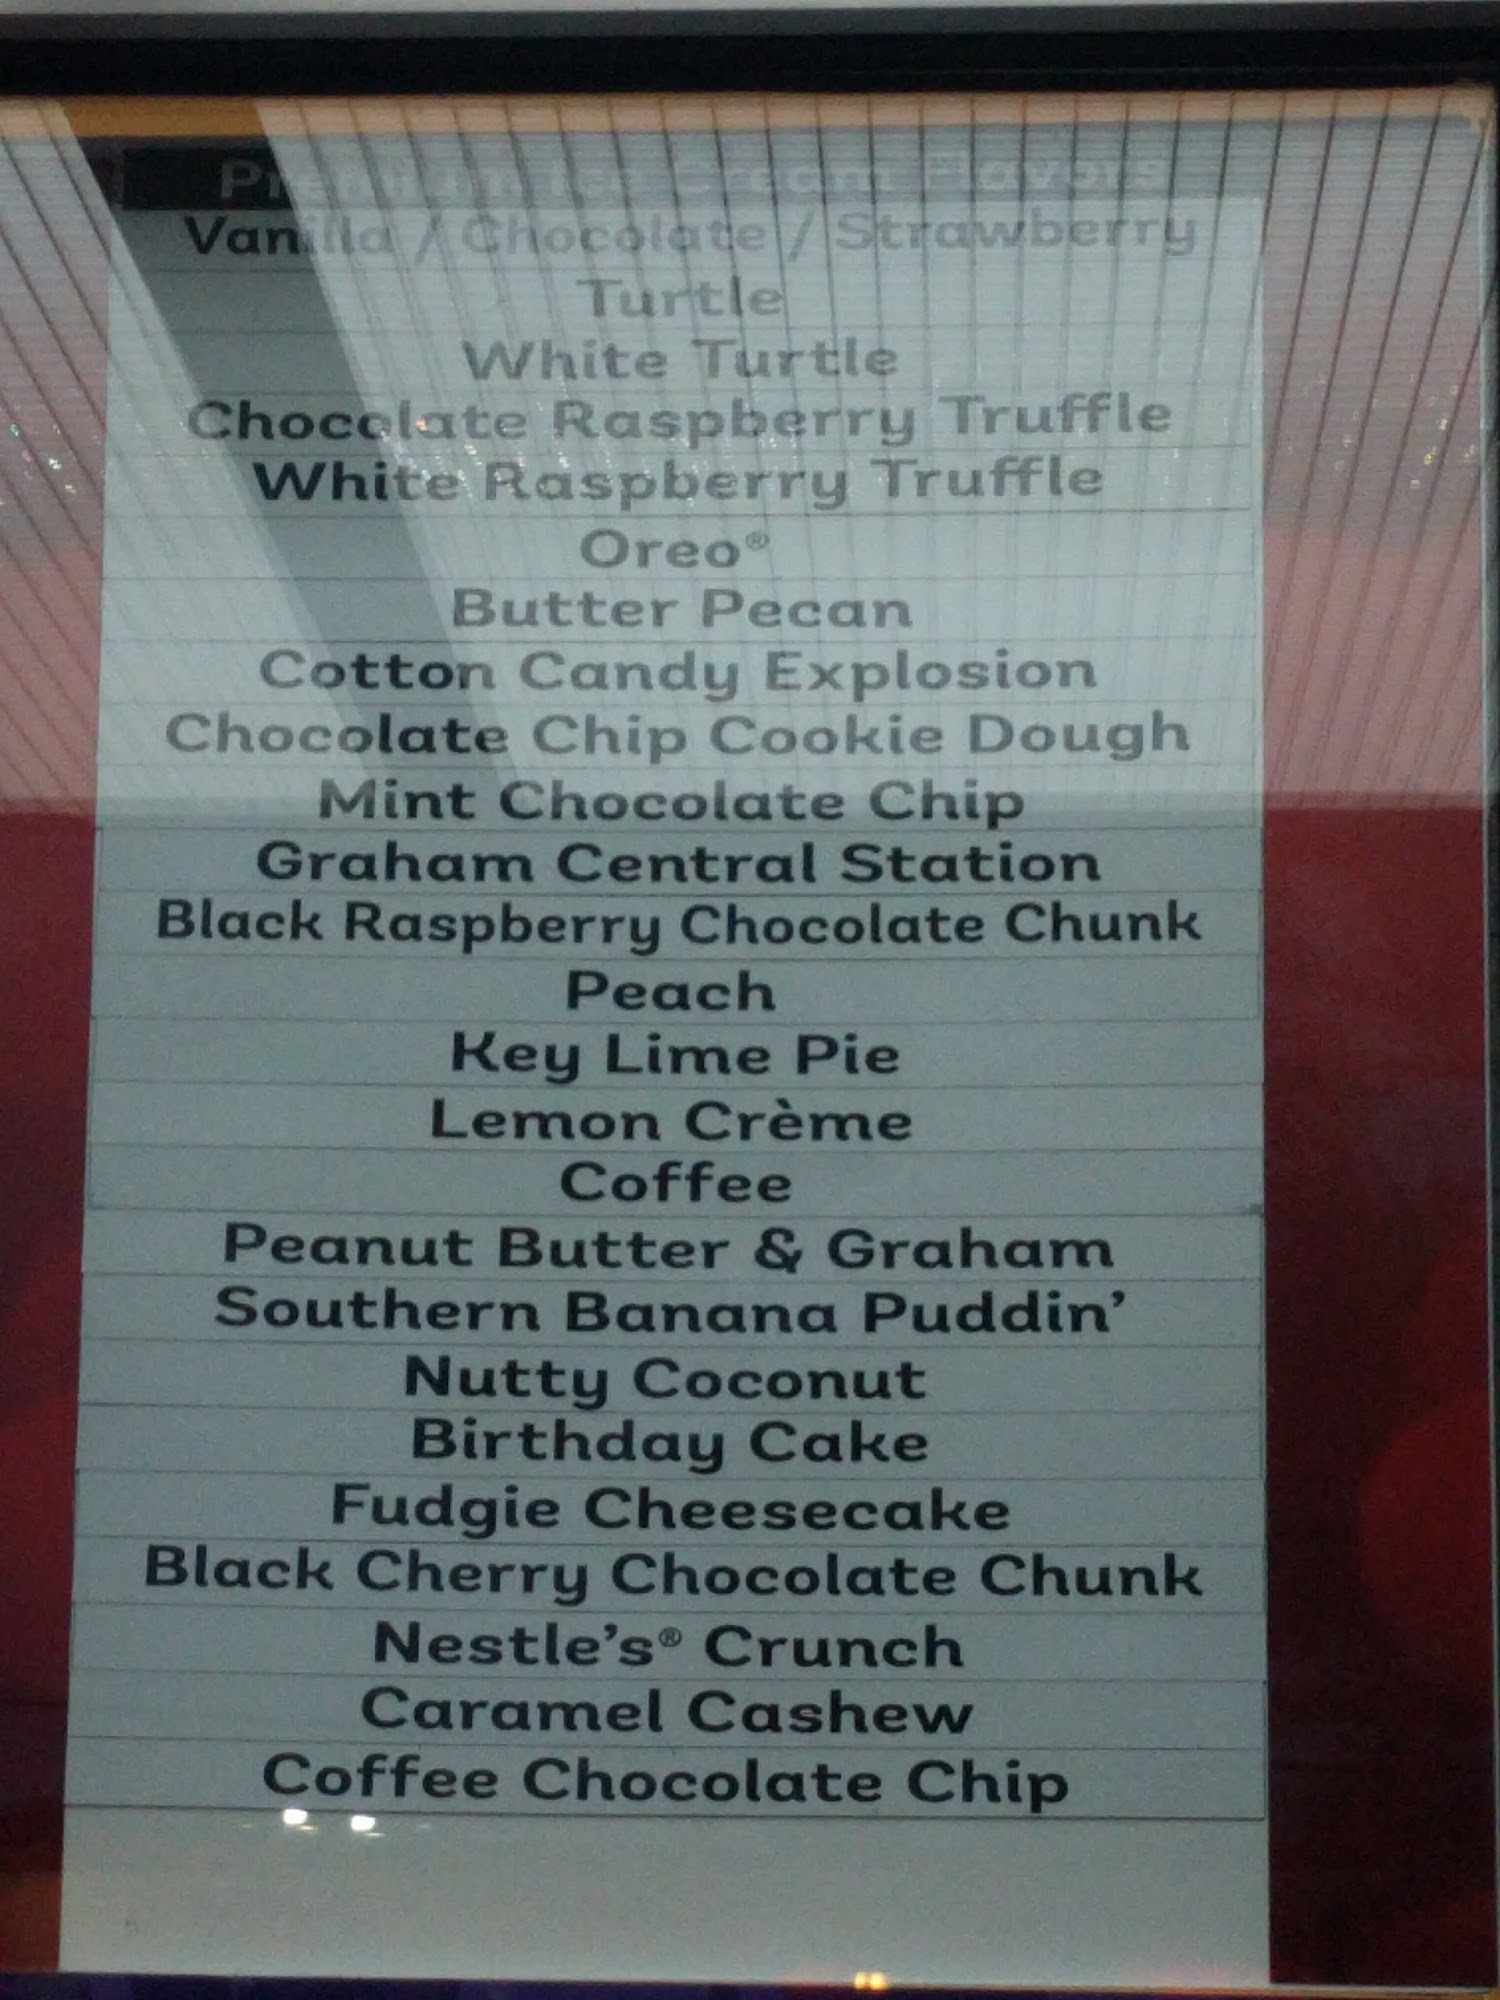 Premium Ice Cream Flavors
Vanilla / Chocolate / Strawberry
Turtle
White Turtle
Chocolate Raspberry Truffle
White Raspberry Truffle
Oreo®
Butter Pecan
Cotton Candy Explosion
Chocolate Chip Cookie Dough
Mint Chocolate Chip
Graham Central Station
Black Raspberry Chocolate Chunk
Peach
Key Lime Pie
Lemon Crème
Coffee
Peanut Butter & Graham
Southern Banana Puddin’
Nutty Coconut
Birthday Cake
Fudgie Cheesecake
Black Cherry Chocolate Chunk
Nestle’s® Crunch
Caramel Cashew
Coffee Chocolate Chip